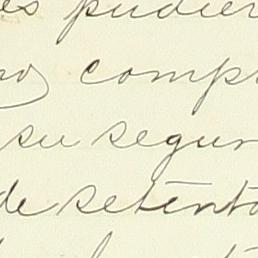 es pudier
no compr
su segur
de setenta